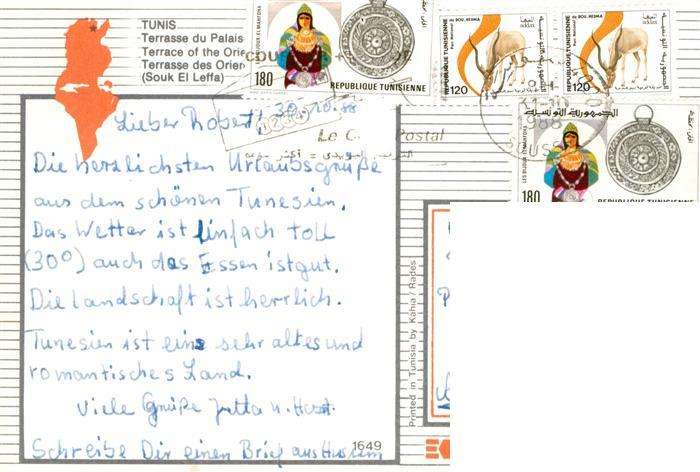 TUNIS
Terrasse du Palais
Terrace of the Orie
Terrasse des Orien
(Souk El Leffa)
180
REPUBLIQUE TUNISIENNE
REPUBLIQUE TUNISIENNE
120
addax
REPUBLIQUE TUNISIENNE
120
addax
الجمهورية التونسية
LES BIJOUX EL MAHFONA
180
REPUBLIQUE TUNISIENNE
Le C Postal
Lieber Robert! 30.10.88
Die herzlichsten Urlaubsgrüße
aus dem schönen Tunesien.
Das Wetter ist einfach toll
(30°) auch das Essen ist gut.
Die Landschaft ist herrlich.
Tunesien ist eine sehr altes und
romantisches Land.
Viele Grüße Jutta u. Horst.
1649
Schreibe Dir einen Brief aus Husum
Printed in Tunisia by Kahia / Rades